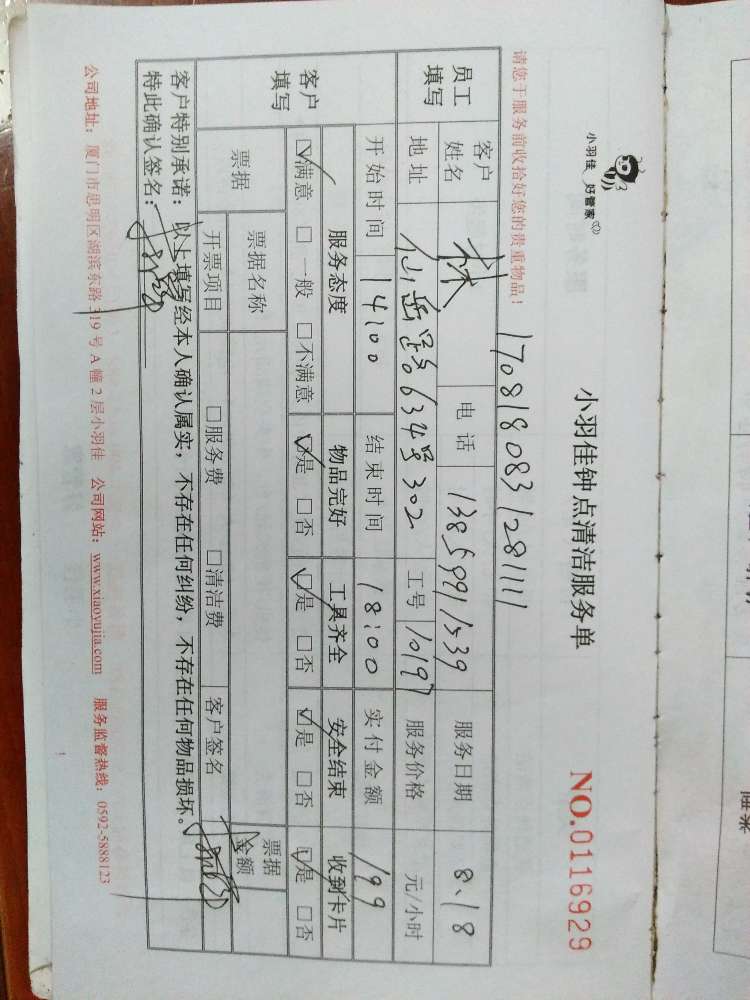 小羽佳 好管家
小羽佳钟点清洁服务单
NO.0116929
请您于服务前收拾好您的贵重物品！
1708180831281111
员工填写
客户姓名 林 电话 13859911539 服务日期 8.18
地址 仙岳路634号302 工号 10197 服务价格 元/小时
客户填写
开始时间 14:00 结束时间 18:00 实付金额 199
服务态度 物品完好 工具齐全 安全结束 收到卡片
☑满意 □一般 □不满意 ☑是 □否 ☑是 □否 ☑是 □否 ☑是 □否
票据 票据名称 票据金额
开票项目 □服务费 □清洁费 客户签名
客户特别承诺：以上填写经本人确认属实，不存在任何纠纷，不存在任何物品损坏。
特此确认签名：
公司地址：厦门市思明区湖滨东路319号A幢2层小羽佳 公司网站：www.xiaoyujia.com 服务监督热线：0592-5888123